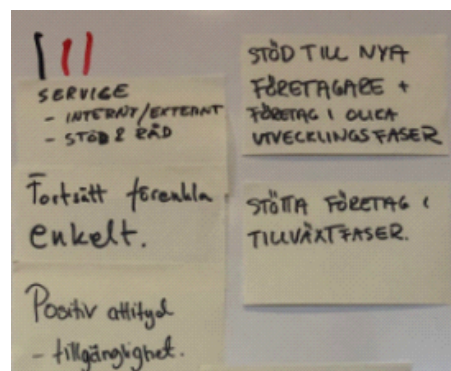 SERVICE
- INTERNT/EXTERNT
- STÖD & RÅD
Fortsätt förenkla
enkelt.
Positiv attityd
- tillgänglighet.
STÖD TILL NYA
FÖRETAGARE +
FÖRETAG I OLIKA
UTVECKLINGSFASER
STÖTTA FÖRETAG I
TILLVÄXTFASER.